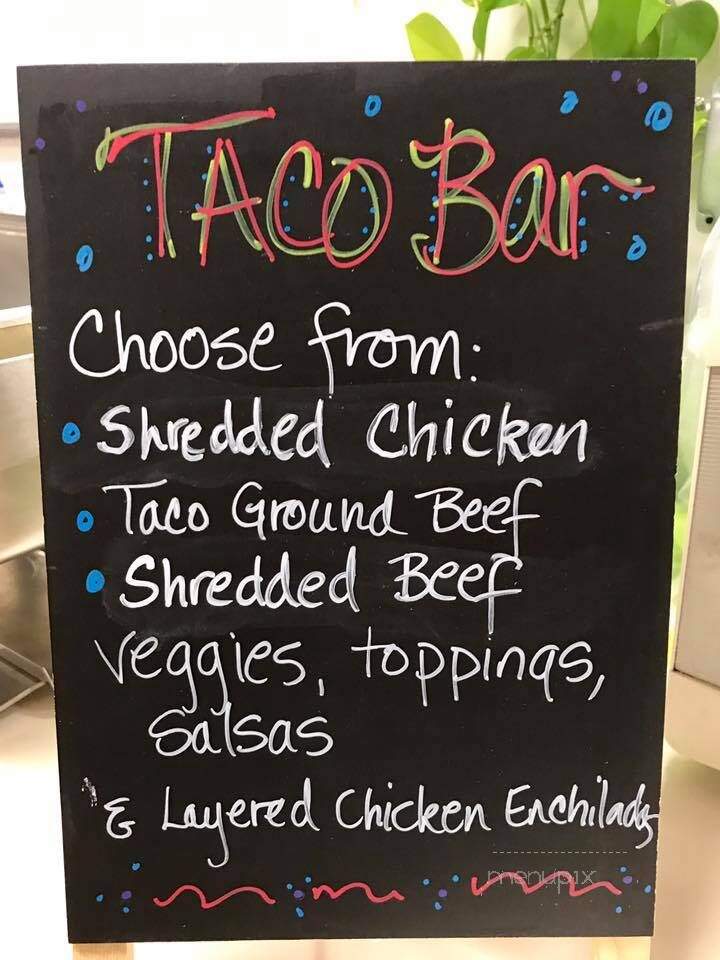 TACO Bar
Choose from:
Shredded Chicken
Taco Ground Beef
Shredded Beef
veggies, toppings,
salsas
& Layered Chicken Enchiladas
menupix